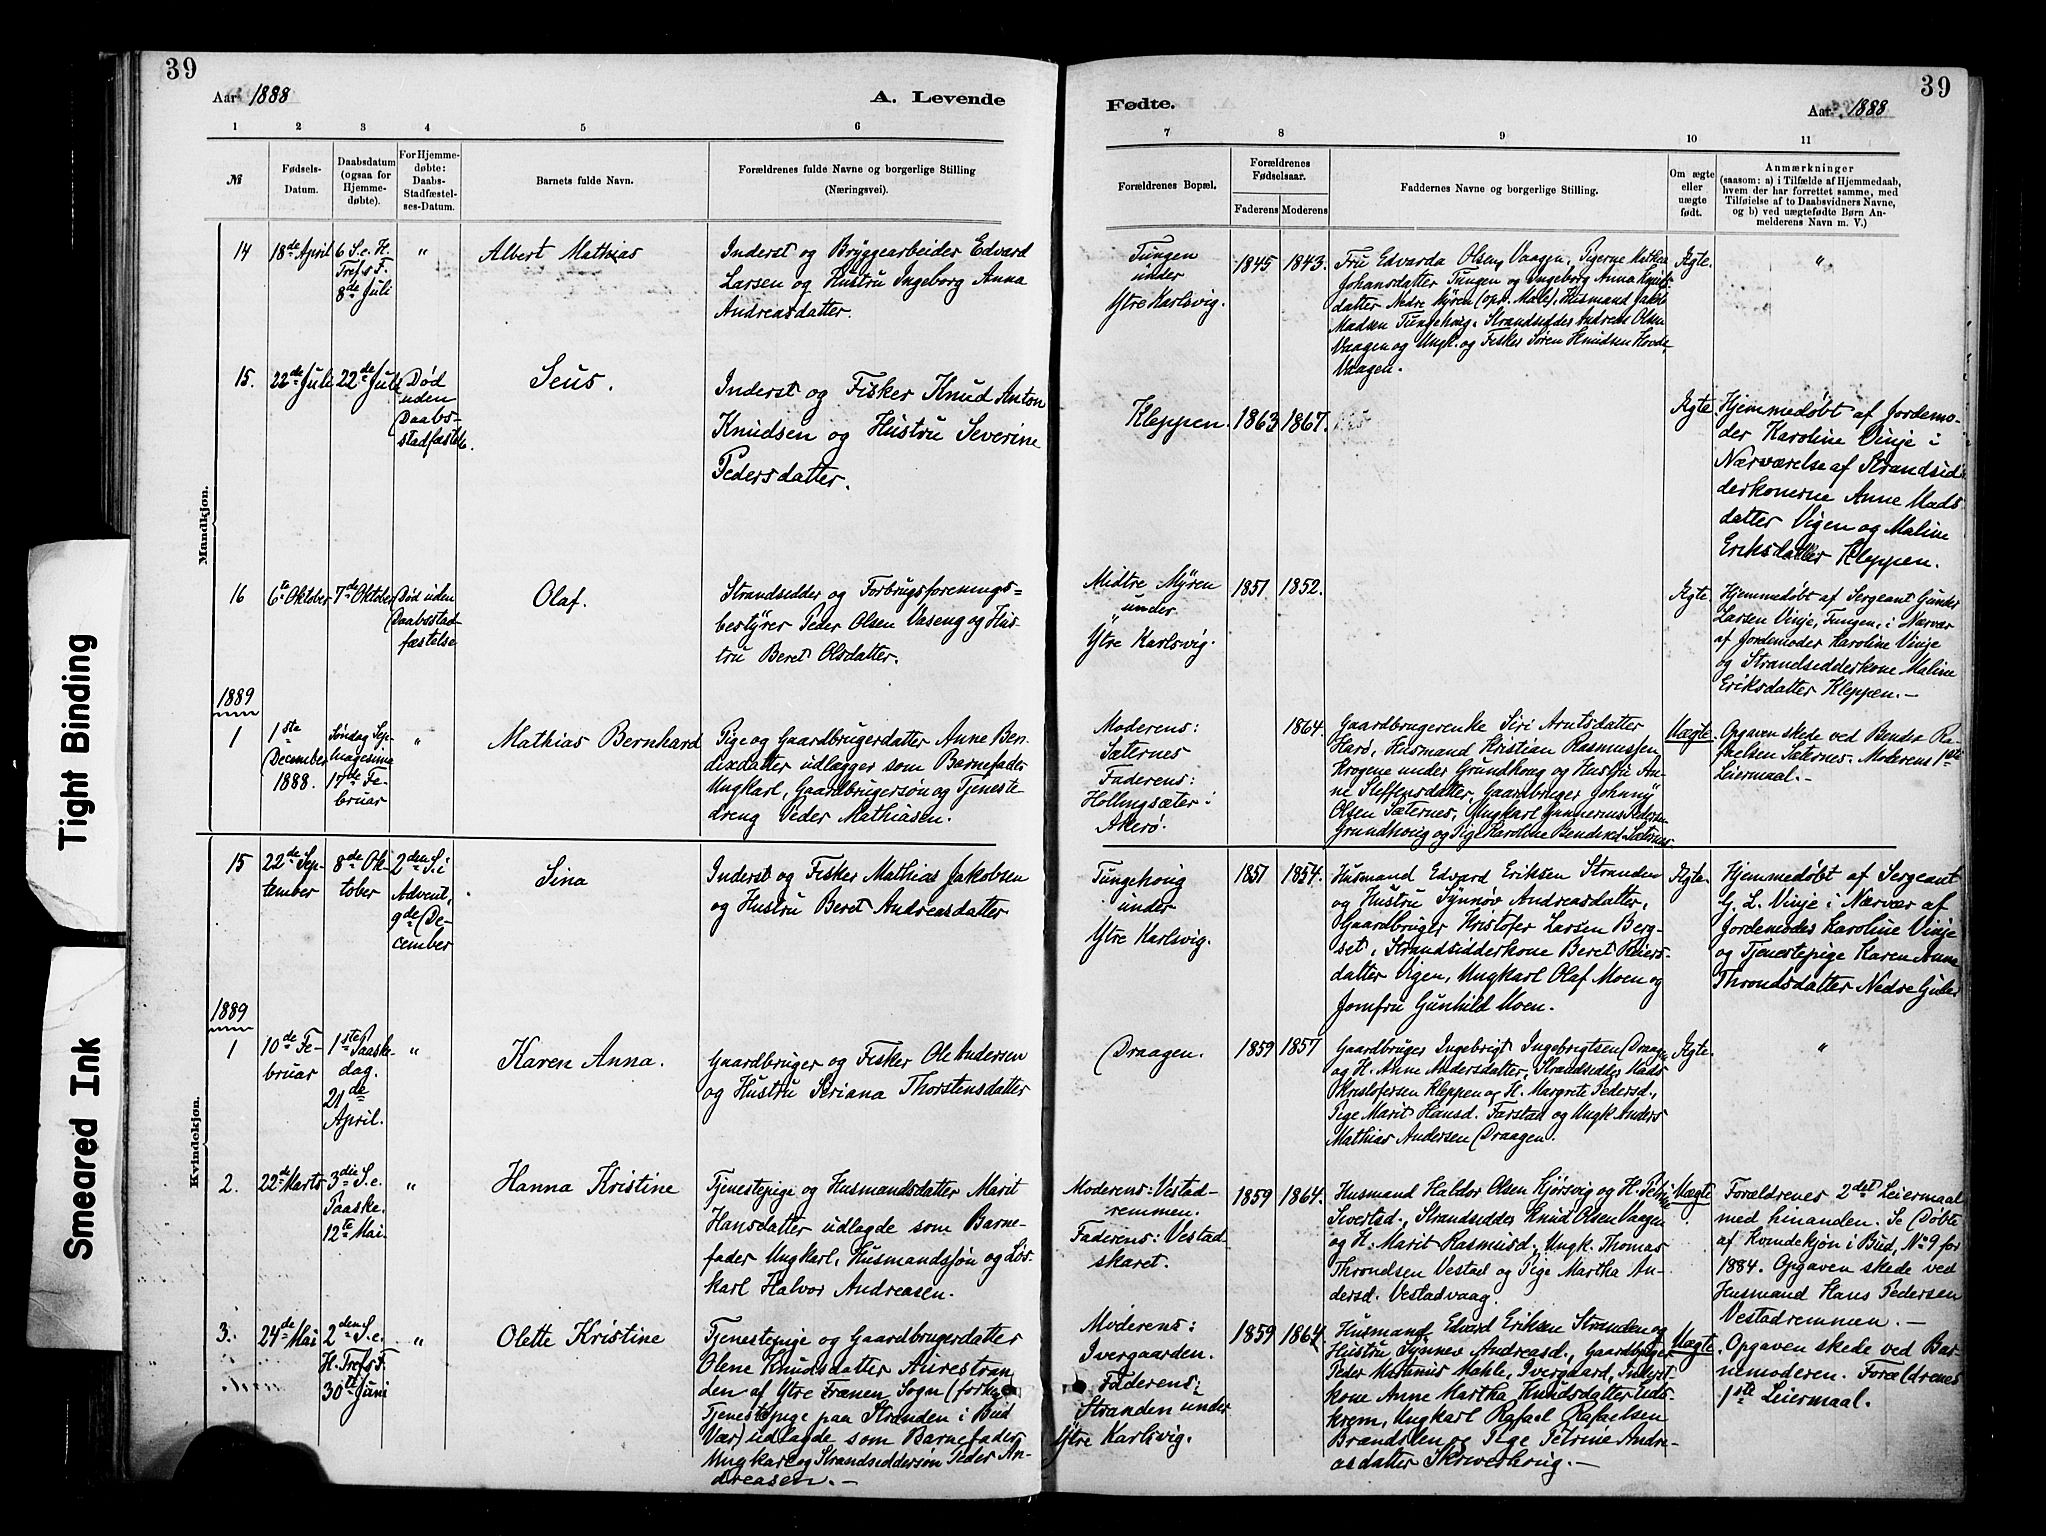 39
39
Aar 1888
A. Levende
Fødte.
Aar 1888
1
2
3
4
5
6
7
8
9
10
11
№
Fødsels-
Datum.
Daabsdatum
(ogsaa for
Hjemme-
døbte).
For Hjemme-
døbte:
Daabs-
Stadfæstel-
ses-Datum.
Barnets fulde Navn.
Forældrenes fulde Navne og borgerlige Stilling
(Næringsvei).
Forældrenes Bopæl.
Forældrenes
Fødselsaar.
Faderens
Moderens
Faddernes Navne og borgerlige Stilling.
Om ægte
eller
uægte
født.
Anmærkninger
(saasom: a) i Tilfælde af Hjemmedaab,
hvem der har forrettet samme, med
Tilføielse af to Daabsvidners Navne,
og b) ved uægtefødte Børn An-
melderens Navn m. V.)
Mandkjøn.
14
18de April
6 S. e. H.
Tref. F.
8de Juli
"
Albert Mathias
Inderst og Bryggearbeider Edvard
Larsen og Hustru Ingeborg Anna
Andreasdatter.
Tungen
under
Ytre Karlsvig.
1845
1843.
Fru Edvarda Olsen Vaagen, Pigerne
Johansdatter Tungen og Ingeborg Anna
datter Nedre Myren Husmand Jakob
Madsen Tungehoug, Strandsidder Andreas Olsen
Vaagen og Ungk. og Fisker Søren Knudsen
Vaagen.
Ægte.
"
15.
22de Juli
22de Juli
Død
uden
Daabs-
stadfæstelse.
Seus.
Inderst og Fisker Knud Anton
Knudsen og Hustru Severine
Pedersdatter.
Kleppen.
1863
1867.
Ægte
Hjemmedøbt af Jordemo-
der Karoline Vinje i
Nærværelse af Strandsid-
derkonerne Anne Mads-
datter Vigen og Maline
Eriksdatter Kleppen.
16
6te Oktober
7de Oktober
Død uden
Daabsstad-
fæstelse
Olaf.
Strandsidder og Forbrugsforenings-
bestyrer Peder Olsen Vaseng og Hus-
tru Beret Olsdatter.
Midtre Myren
under
Ytre Karlsvig.
1851
1852.
Ægte.
Hjemmedøbt af Sergeant
Larsen Vinje, Tungen, i Nærvær
af Jordemoder Karoline Vinje
og Strandsidderkone Maline
Eriksdatter Kleppen. —
1889
1
1ste
December
1888.
Søndag Sep-
tuagesima
17de Fe-
bruar
"
Mathias Bernhard
Pige og Gaardbrugerdatter Anne Ben-
dixdatter udlægger som Barnefader
Ungkarl, Gaardbrugersøn og Tjeneste-
dreng Peder Mathiasen.
Moderens:
Sæternes
Faderens:
Hollingsæter i
Akerø.
1864.
Gaardbrugerenke Siri Arntsdatter
Harø, Husmand Kristian Rasmussen
Krogene under Grundhoug og Hustru An-
ne Steffensdatter, Gaardbruger Johnny
Olsen Sæternes, Ungkarl Gunnerius Pedersen
Grundhoug og Pige Karoline Bendixd. Sæternes
Uægte.
Opgaven skede ved Bendix Ra-
faelsen Sæternes. Moderens 1ste
Leiermaal. —
Kvindekjøn.
15
22de Sep-
tember
8de Ok-
tober
2den S. i
Advent,
9de De-
cember
Sina
Inderst og Fisker Mathias Jakobsen
og Hustru Beret Andreasdatter
Tungehoug
under
Ytre Karlsvig.
1851
1854.
Husmand Edvard Eriksen Stranden
og Hustru Synnøv Andreasdatter,
Gaardbruger Kristofer Larsen Berg-
set, Strandsidderkone Beret Reiers-
datter Vigen, Ungkarl Olaf Moen og
Jomfru Gunhild Moen.
Ægte.
Hjemmedøbt af Sergeant
G. L. Vinje i Nærvær af
Jordemoder Karoline Vinje
og Tjenestepige Karen Anne
Throndsdatter Nedre
1889
1
10de Fe-
bruar
1ste Paaske-
dag.
21de
April.
"
Karen Anna.
Gaardbruger og Fisker Ole Andersen
og Hustru Seriana Thorstensdatter
Draagen.
1859
1857
Gaardbruger Ingebrigt Ingebrigtsen Draagen
og H. Anne Andersdatter, Strandsidder Mads
Kristofersen Kleppen og H. Margrete Pedersd.,
Pige Marit Hansd. Farstad og Ungk. Anders
Mathias Andersen Draagen.
Ægte.
"
2.
22de Marts
3die S. e.
Paaske.
12te Mai
"
Hanna Kristine
Tjenestepige og Husmandsdatter Marit
Hansdatter udlagde som Barne-
fader Ungkarl, Husmandssøn og Løs-
karl Halvor Andreasen.
Moderens: Vestad-
remmen.
Faderens: Vestad-
skaret.
1859
1864.
Husmand Haldor Olsen Kjørsvig og H. Petrine
Sivertsd., Strandsidder Knud Olsen Vaagen
og H. Marit Rasmusd., Ungk. Thomas
Throndsen Vestad og Pige Martha An-
dersd. Vestadvaag.
Uægte
Forældrenes 2det Leiermaal
med hinanden. Se Døbte
af Kvindekjøn i Bud, No 9 for
1884. Opgaven skede ved
Husmand Hans Pedersen
Vestadremmen. —
3.
24de Mai
2den S. e.
H. Tref. F.
30te Juni
"
Olette Kristine
Tjenestepige og Gaardbrugerdatter
Olene Knudsdatter Aurestran-
den af Ytre Frænen Sogn (forh.
Tjenestepige paa Stranden i Bud
Vær) udlagde som Barnefader
Ungkarl og Strandsiddersøn Peder An-
dreasen. —
Moderens:
Ivergaarden.
Faderens:
Stranden under
Ytre Karlsvig.
1859
1864
Husmand Edvard Eriksen Stranden og
Hustru Synnøv Andreasd., Gaardbruger
Peder Martinus Mahle, Ivergaard, Inderst-
kone Anne Martha Knudsdatter Uds-
krem, Ungkarl Rafael Rafaelsen
Brandslen og Pige Petrine Andre-
asdatter Skriverhoug. —
Uægte.
Opgaven skede ved Bar-
nemoderen. Forældrenes
1ste Leiermaal.
Tight Binding
Smeared Ink